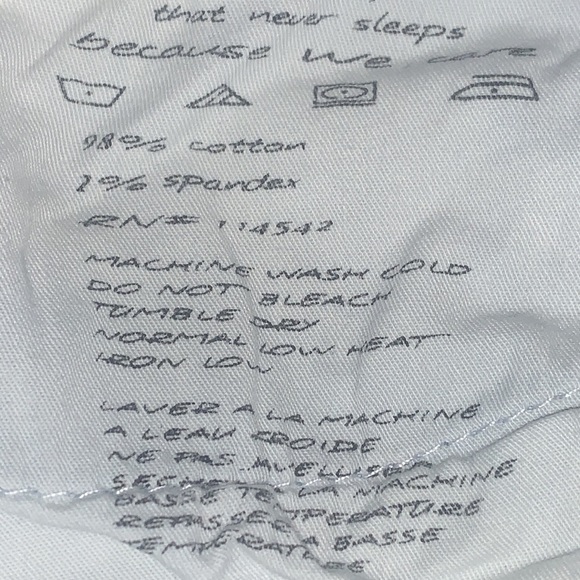 that never sleeps
because we care
98% cotton
2% spandex
RN# 114542
MACHINE WASH COLD
DO NOT BLEACH
TUMBLE DRY
NORMAL LOW HEAT
IRON LOW
LAVER A LA MACHINE
A LEAU FROIDE
NE PAS
SECHE LA MACHINE
BASSE TEMPERATURE
REPASSE A BASSE
TEMPERATURE